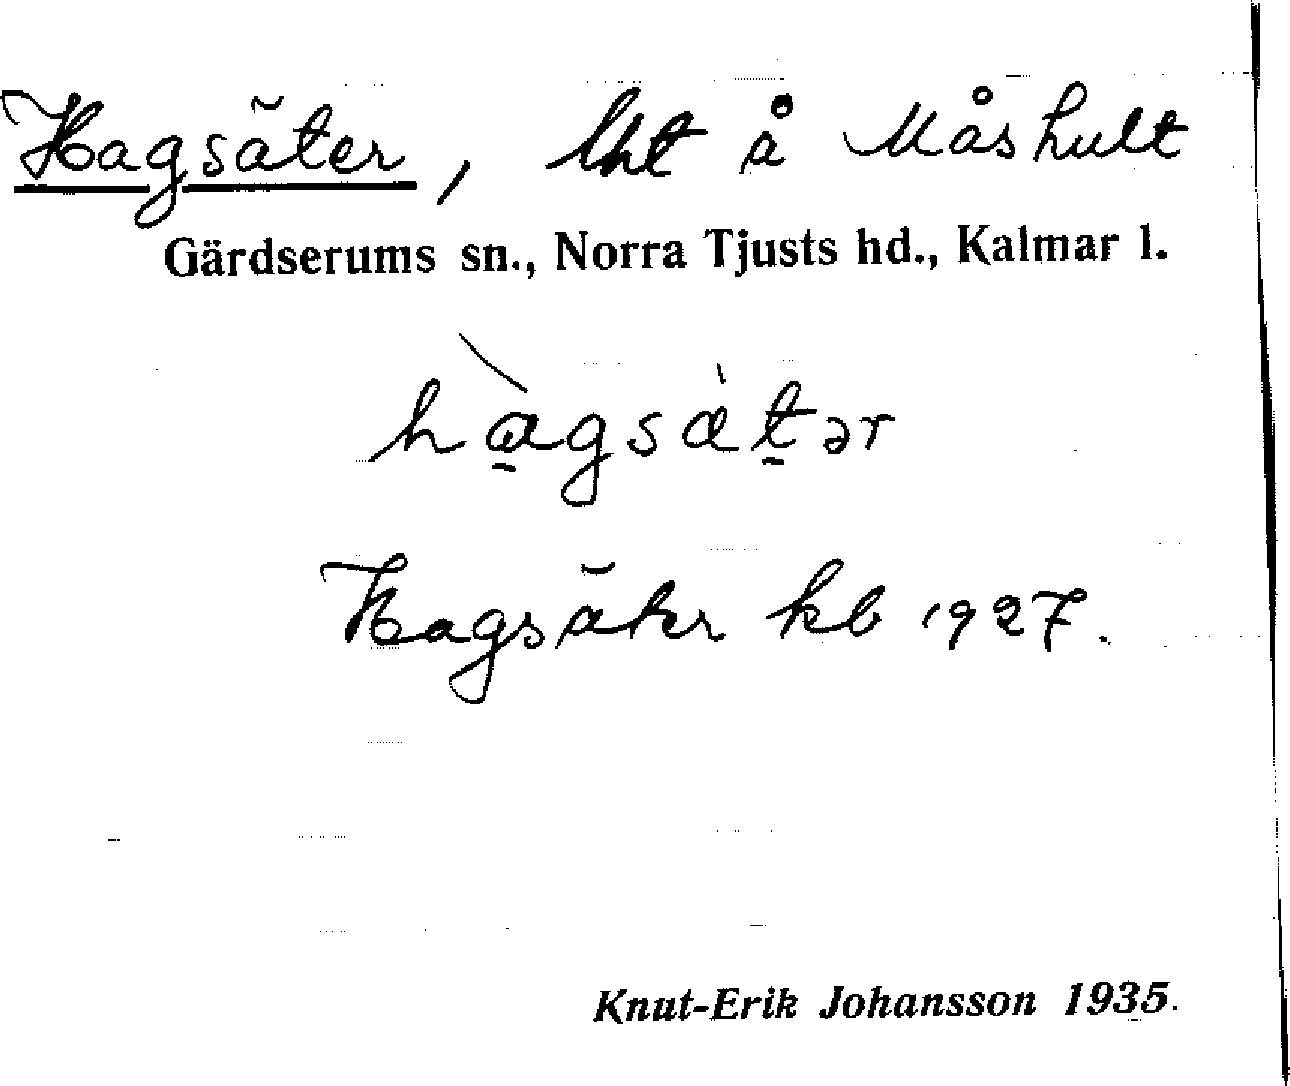 Hagsäter, lht å Måshult
Gärdserums sn., Norra Tjusts hd., Kalmar l.
hàgsǽtər
Hagsäter kb 1927.
Knut-Erik Johansson 1935.